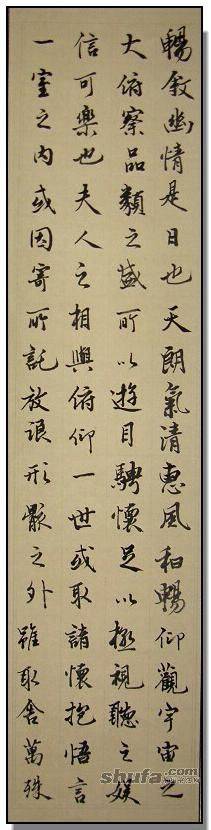 暢敘幽情是日也天朗氣清惠風和暢仰觀宇宙之
大俯察品類之盛所以遊目騁懷足以極視聽之娛
信可樂也夫人之相與俯仰一世或取諸懷抱悟言
一室之內或因寄所託放浪形骸之外雖取舍萬殊
shufa.com